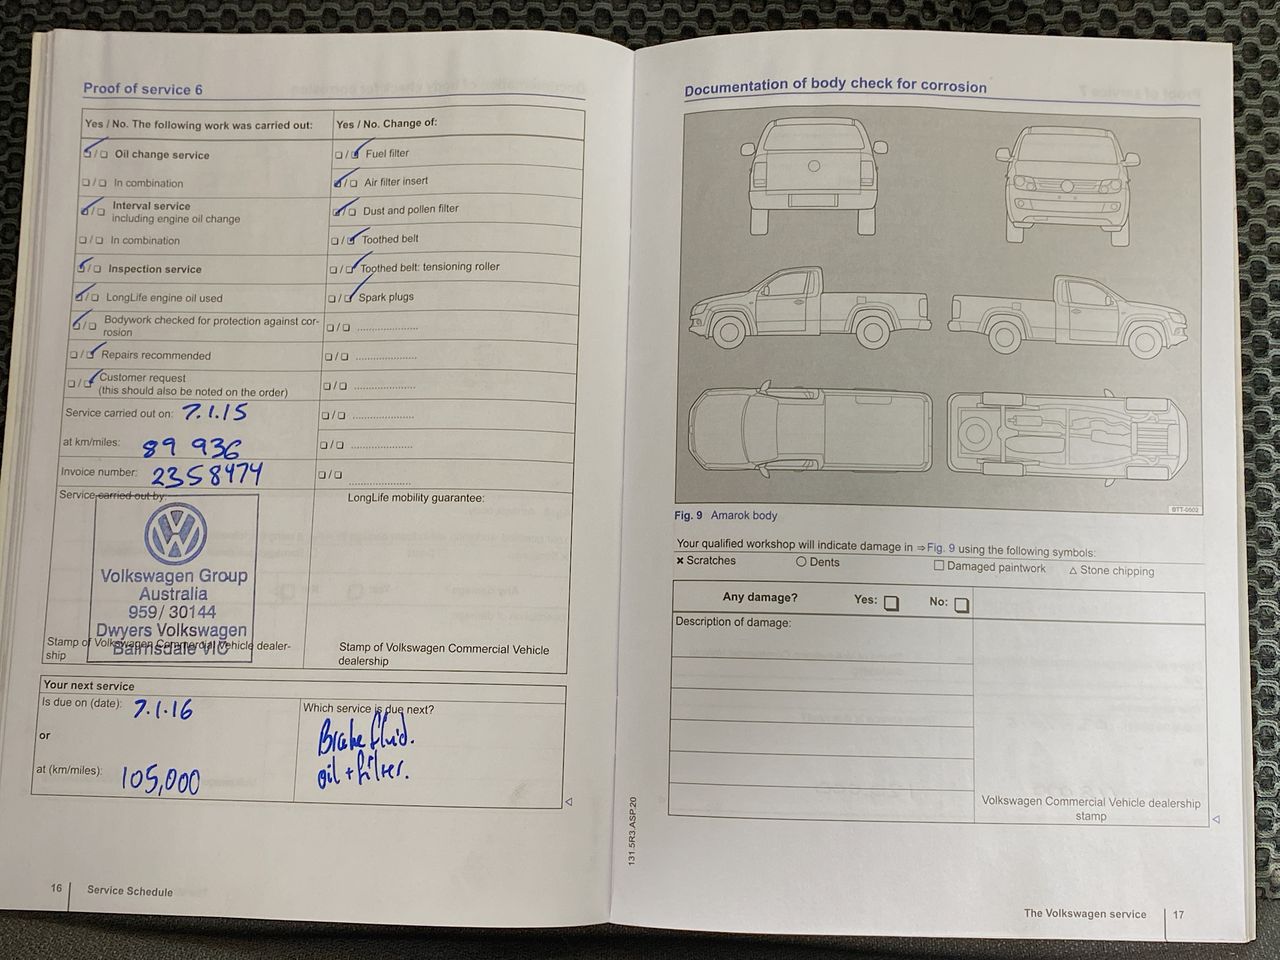 Proof of service 6
Yes / No. The following work was carried out:
☑/☐ Oil change service
☐/☐ In combination
☑/☐ Interval service
including engine oil change
☐/☐ In combination
☑/☐ Inspection service
☑/☐ LongLife engine oil used
☑/☐ Bodywork checked for protection against cor-
rosion
☐/☑ Repairs recommended
☐/☑ Customer request
(this should also be noted on the order)
Service carried out on: 7.1.15
at km/miles: 89 936
Invoice number: 2358474
Yes / No. Change of:
☐/☑ Fuel filter
☑/☐ Air filter insert
☑/☐ Dust and pollen filter
☐/☑ Toothed belt
☐/☑ Toothed belt: tensioning roller
☐/☑ Spark plugs
☐/☐ ....................
☐/☐ ....................
☐/☐ ....................
☐/☐ ....................
☐/☐ ....................
☐/☐ ....................
Service carried out by:
VW
Volkswagen Group
Australia
959/ 30144
Dwyers Volkswagen
Bairnsdale VIC
Stamp of Volkswagen Commercial Vehicle dealer-
ship
LongLife mobility guarantee:
Stamp of Volkswagen Commercial Vehicle
dealership
Your next service
Is due on (date): 7.1.16
or
at (km/miles): 105,000
Which service is due next?
Brake fluid.
oil + filter.
16 Service Schedule
Documentation of body check for corrosion
BTT-0502
Fig. 9 Amarok body
Your qualified workshop will indicate damage in ⇒ Fig. 9 using the following symbols:
× Scratches ○ Dents ☐ Damaged paintwork △ Stone chipping
Any damage? Yes: ☐ No: ☐
Description of damage:
Volkswagen Commercial Vehicle dealership
stamp
131.5R3.ASP.20
The Volkswagen service 17